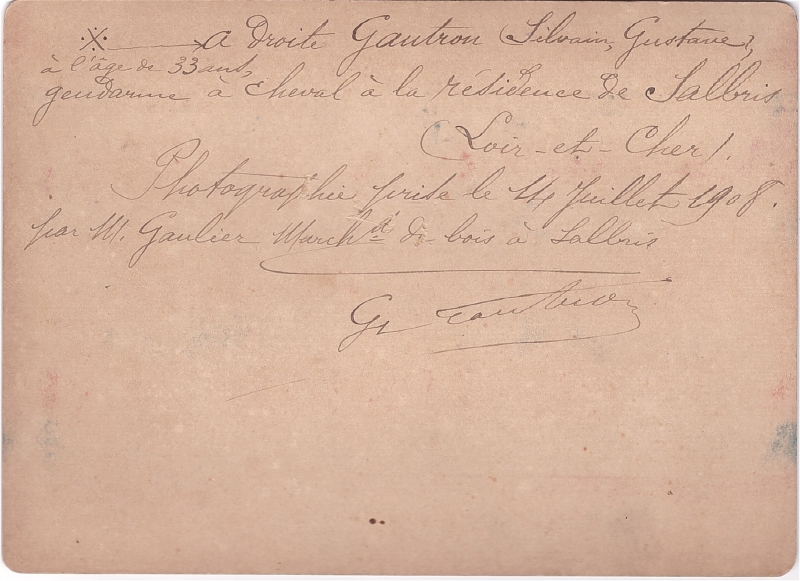 ※ A Droite Gautron (Silvain, Gustave),
à l'âge de 33 ans,
gendarme à cheval à la résidence de Salbris
(Loir-et-Cher).
Photographie prise le 14 Juillet 1908.
par M. Gaulier Marchd de bois à Salbris
G Gautron